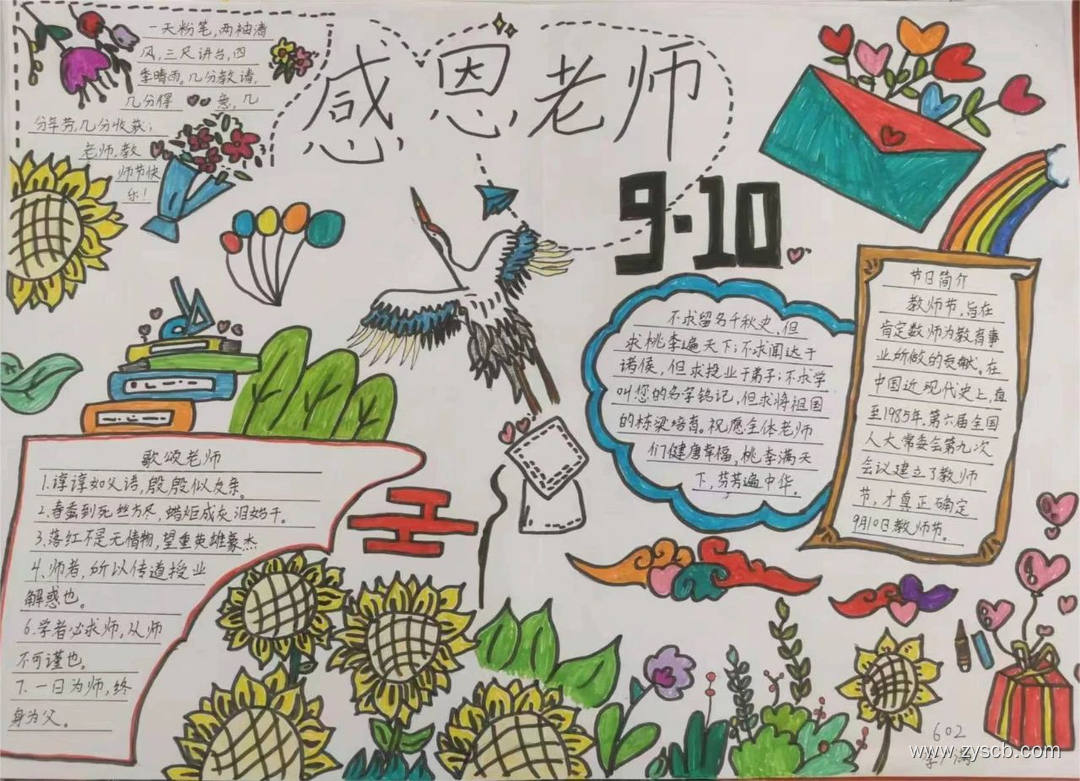 一天粉笔,两袖清
风,三尺讲台,四
季晴雨。几分教诲,
几分得 意,几
分辛劳,几分收获;
老师,教
师节快
乐!
感恩老师
9·10
节日简介
教师节,旨在
肯定教师为教育事
业所做的贡献,在
中国近现代史上,直
至1985年,第六届全国
人大常委会第九次
会议建立了教师
节,才真正确定
9月10日教师节。
不求留名千秋史,但
求桃李遍天下;不求闻达于
诸侯,但求授业于弟子;不求学
叫您的名字铭记,但求将祖国
的栋梁培育。祝愿全体老师
们健康幸福,桃李满天
下,芬芳遍中华。
歌颂老师
1.谆谆如父语,殷殷似友亲。
2.春蚕到死丝方尽,蜡炬成灰泪始干。
3.落红不是无情物,望重英雄豪杰
4.师者,所以传道授业
解惑也。
6.学者必求师,从师
不可谨也。
7.一日为师,终
身为父。
602
www.zyscb.com